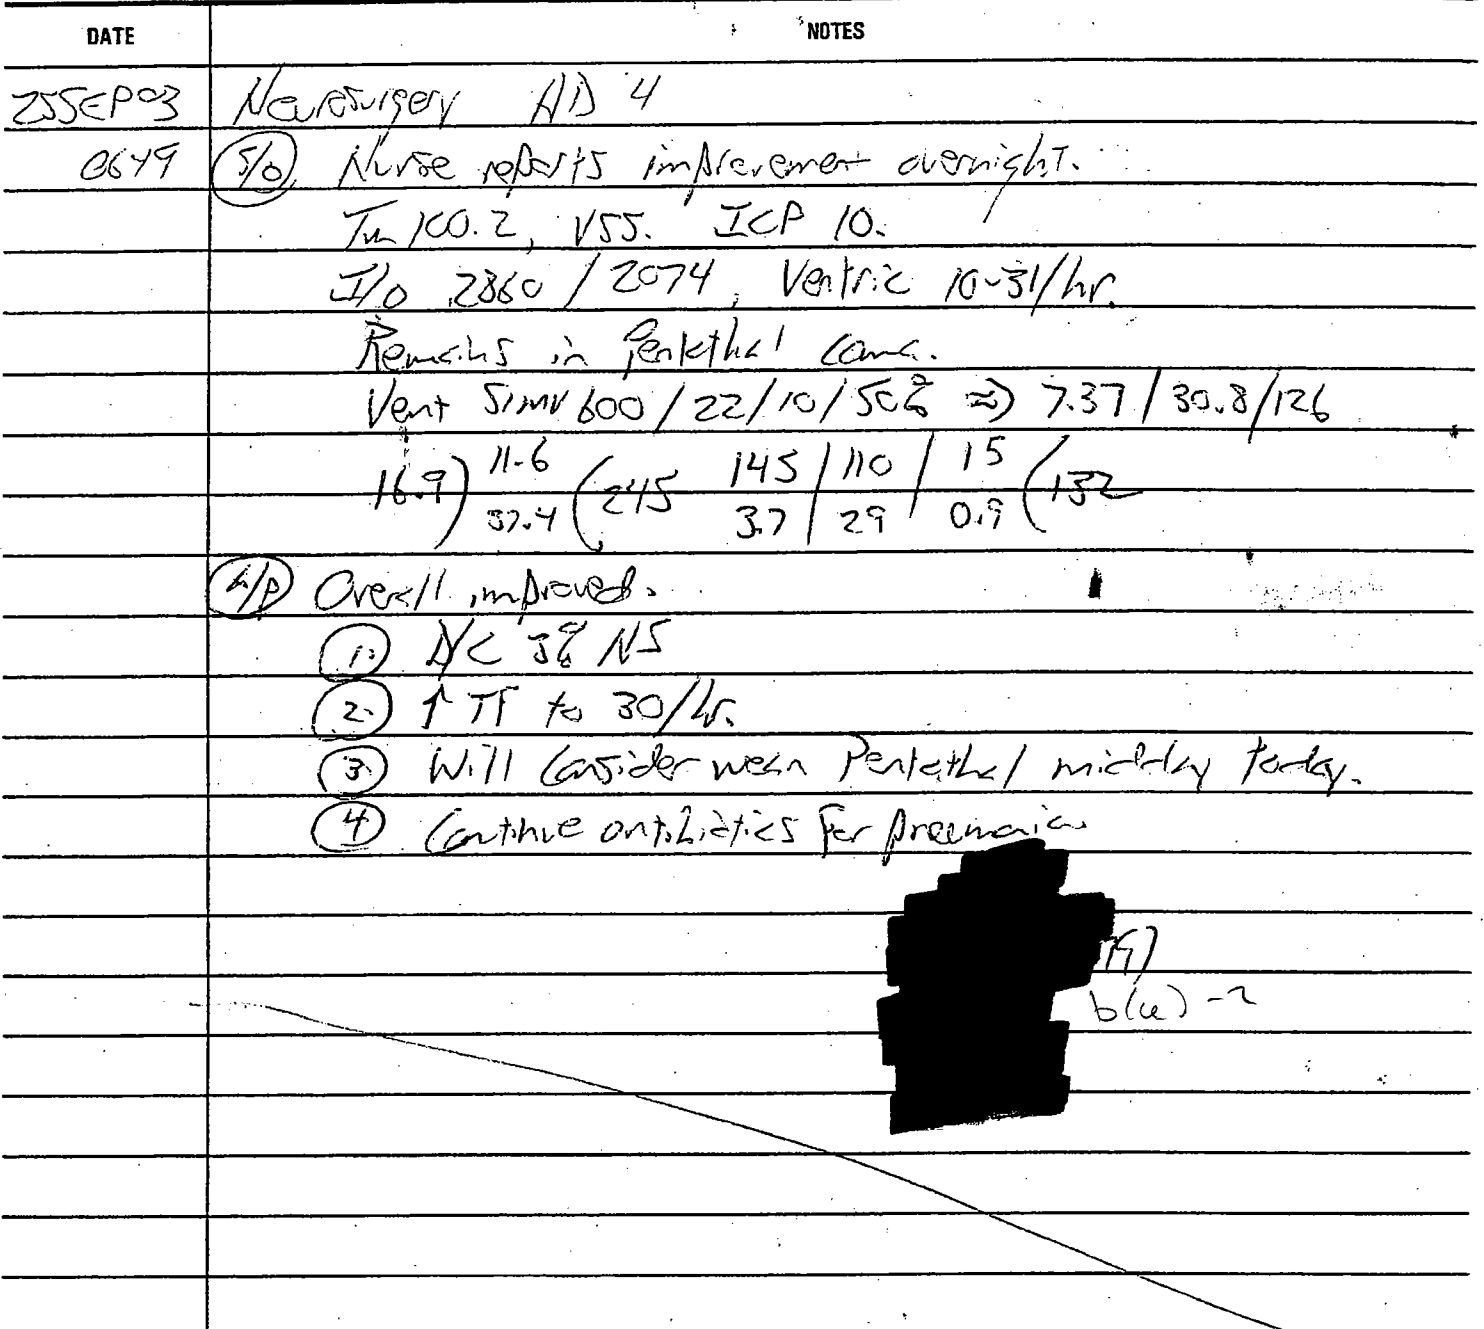 DATE NOTES
25SEP03 Neurosurgery HD 4
0649 S/O Nurse reports improvement overnight.
Tm 100.2, VSS. ICP 10.
I/O 2860 / 2074, Ventric 10-31/hr.
Remains in Pentothal coma.
Vent SIMV 600 / 22 / 10 / 50% ⇒ 7.37 / 30.8 / 126
16.9 ) 11.6 ( 245 145 / 110 / 15 ( 132
37.4 3.7 / 29 / 0.9
A/P Overall improved.
1. D/C 3% NS
2. ↑ TF to 30/hr.
3. Will consider wean Pentothal midday today.
4 Continue antibiotics for pneumonia
b(6)-2